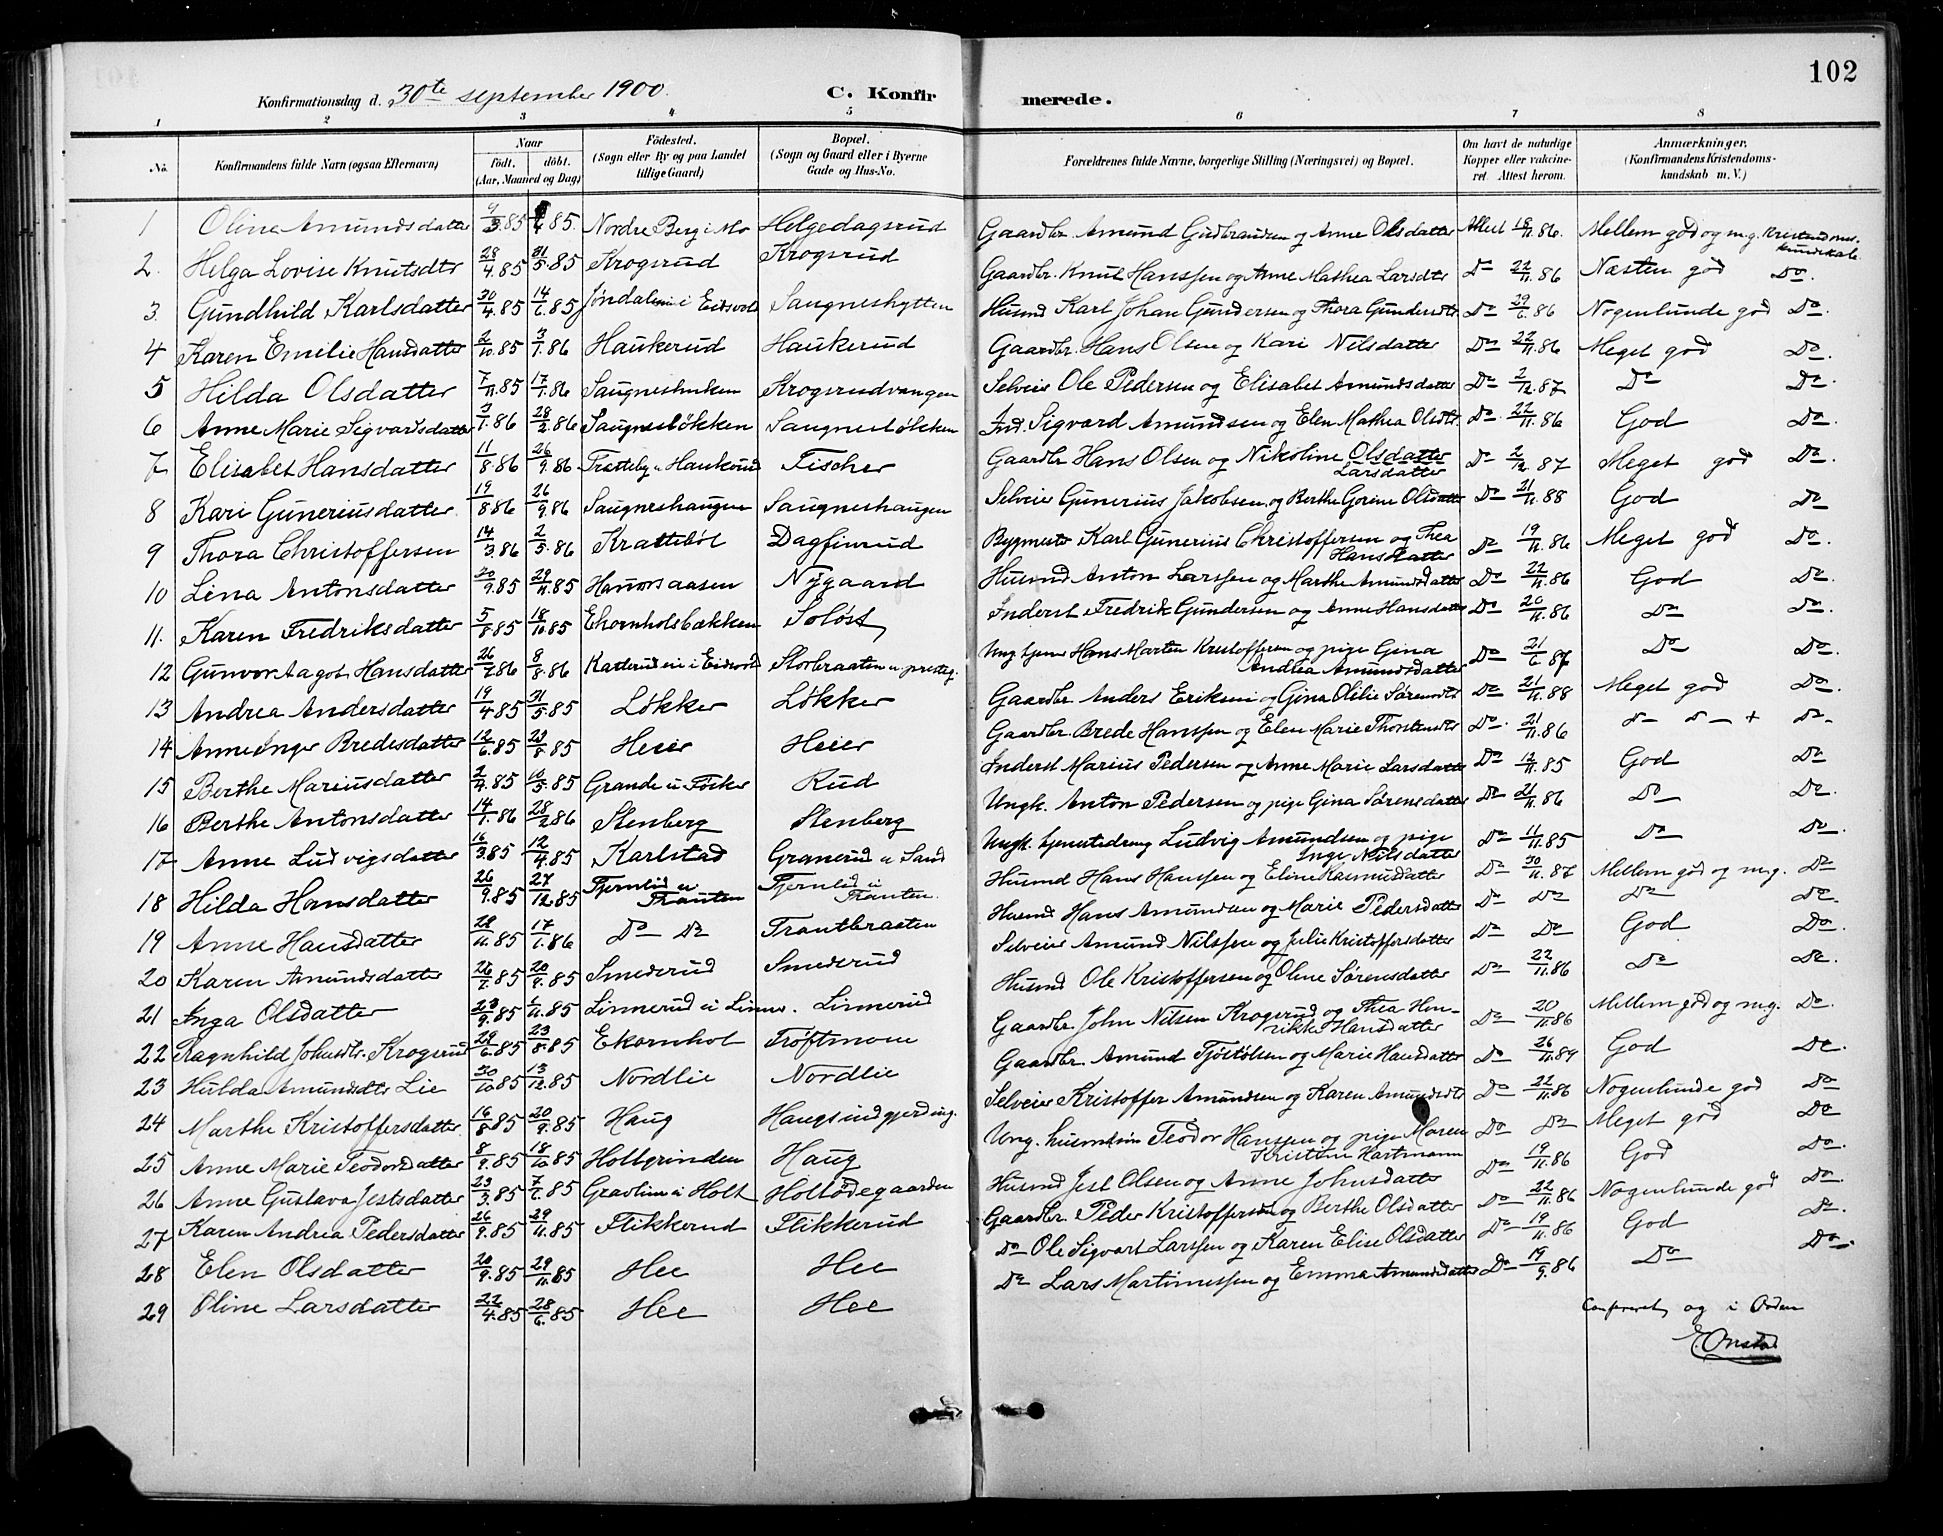 102
Konfirmationsdag d. 30te september 1900. C. Konfirmerede.
1 2 3 4 5 6 7 8
No. Konfirmandens fulde Navn (ogsaa Efternavn) Naar födt. döbt. (Aar, Maaned og Dag) Födested. (Sogn eller By og paa Landet tillige Gaard) Bopæl. (Sogn og Gaard eller i Byerne Gade og Hus-No. Forældrenes fulde Navne, borgerlige Stilling (Næringsvei) og Bopæl. Om havt de naturlige Kopper eller vakcineret. Attest herom. Anmærkninger. (Konfirmandens Kristendomskundskab m. V.)
1 Oline Amundsdatter 9/3.85 /4.85. Nordre Berg i Mo Helgedagsrud Gaardbr. Amund Gudbrandsen og Anne Olsdatter Attest 18/11.86. Mellem god og m.g. Kristendomskundskab.
2. Helga Lovise Knutsdtr 28/4.85 31/5.85 Krogsrud Krogsrud Gaardbr. Knut Hanssen og Anne Mathea Larsdtr Do 22/11.86 Næsten god Do.
3. Gundhild Karlsdatter 30/4.85 14/6.85 Jøndalen i Eidsvold Saugneshytten Husmd Karl Johan Gundersen og Thora Gundersdtr Do 29/6.86 Nogenlunde god Do.
4 Karen Emilie Hansdatter 2/10.85 3/1.86 Haukerud Haukerud Gaardbr. Hans Olsen og Kari Nilsdatter Do 22/11.86 Meget god Do.
5 Hilda Olsdatter 7/11.85 17/1.86 Saugneshuken Krogsrudvangen Selveier Ole Pedersen og Elisabet Amundsdatter Do 2/12.87 Do Do.
6 Anne Marie Sigvardsdatter 3/1.86 28/2.86 Saugnesløkken Saugnesløkken Ind. Sigvard Amundsen og Elen Mathea Olsdtr. Do 22/11.86 God Do.
7 Elisabet Hansdatter 11/8.86 26/9.86 Tratteby u. Haukerud Fischer Gaardbr Hans Olsen og Nikoline Olsdatter Larsdatter Do 2/12.87 Meget god Do.
8 Kari Guneriusdatter. 19/8.86 26/9.86 Saugneshaugen Saugneshaugen Selveier Gunerius Jakobsen og Berthe Gorine Olsdatter Do 21/11.88 God Do
9 Thora Christoffersen 14/3.86 2/5.86 Kratteböl Dagfinrud Bygmester Karl Gunerius Christoffersen og Thea Hansdatter Do 19/11.86 Meget god Do.
10 Lina Antonsdatter 20/9.85 29/11.85 Hanorsaasen Nygaard Husmd Anton Larssen og Marthe Amundsdatter Do 22/11.86 God Do.
11. Karen Fredriksdatter 5/8.85 18/10.85 Ekornholsbækken Soløst Inderst Fredrik Gundersen og Anne Hansdatter Do 20/11.86 Do Do.
12 Gunvor Aagot Hansdatter 26/7.86 8/8.86 Katterud i Eidsvold Storbraaten u. presteg. Ung. tjener Hans Martin Kristoffersen og pige Gina Andrea Amundsdatter Do 21/6.87 Do Do.
13 Andrea Andersdatter 19/4.85 31/5.85 Løkker Løkker Gaardbr. Anders Eriksen og Gina Otilie Sørensdtr Do 21/11.88 Meget god Do.
14 Anne Inger Bredesdatter 12/6.85 23/8.85 Heier Heier Gaardbr. Brede Hanssen og Elen Marie Thorstensdtr Do. 21/11.86 Do Do + Do
15 Berthe Mariusdatter 2/4.85 10/5.85 Grande u Fosker Rud Inderst Marius Pedersen og Anne Marie Larsdatter Do 12/11.85 God Do
16 Berthe Antonsdatter 14/1.86 28/2.86 Stenberg Stenberg Ungk. Anton Pedersen og pige Gina Sørensdatter Do 21/11.86 Do Do.
17 Anne Ludvigsdatter 16/3.85 12/4.85 Karlstad Granerud u Sand Ungk. tjenestedreng Ludvig Amundsen og pige Inge Nilsdatter Do 11/11.85 Do Do.
18 Hilda Hansdatter 26/9.85 27/12.85 Tjernlid u Tranten Tjernlid u Tranten. Husmd Hans Hanssen og Eline Rasmusdatter Do 30/11.87 Mellem god og m.g. Do
19 Anne Hansdatter 28/11.85 17/1.86 Do Do Trantbraaten Husmd Hans Amundsen og Marie Pedersdatter Do Do Do Do.
20 Karen Amundsdatter 26/7.85 20/9.85 Smederud Smederud Selveier Amund Nilssen og Julie Kristoffersdatter Do Do God Do.
21 Inga Olsdatter 23/9.85 1/11.85 Linnerud u Linner. Linnerud Husmd Ole Kristoffersen og Oline Sørensdatter Do 22/11.86 Do Do.
22 Ragnhild Johnsdtr. Krogsrud 29/6.85 23/8.85 Ekornhol Trøftmoen Gaardbr. John Nilsen Krogsrud og Thea Henrikke Hansdatter Do 20/11.86 Mellem god og m.g. Do.
23 Hulda Amundsdtr Lie 30/10.85 13/12.85 Nordlie Nordlie Gaardbr. Amund Tjöstolsen og Marie Hansdatter Do 26/11.89 God Do.
24 Marthe Kristoffersdatter 16/8.85 20/9.85 Haug Haugsindgjerding. Selveier Kristoffer Amundsen og Karen Amundsdtr Do 22/11.86 Nogenlunde god Do
25 Anne Marie Teodorsdatter 8/9.85 18/10.85 Holtgrinden Haug Ung. husmdsön Teodor Hanssen og pige Maren Kristine Hartmann Do Do Meget god Do
26 Anne Gustava Jestsdatter 23/3.85 7/6.85 Gravlien i Holt Holtødegaarden Husmd Jest Olsen og Anne Johnsdatter Do 19/11.86 God Do.
27 Karen Andrea Pedersdatter 26/9.85 29/11.85 Flikkerud Flikkerud Gaardbr. Peder Kristoffersen og Berthe Olsdatter Do 22/11.86 Nogenlunde god Do.
28 Elen Olsdatter 20/9.85 29/11.85 Hee Hee Do Ole Sigvart Larssen og Karen Elise Olsdatter Do 19/11.86 God Do.
29 Oline Larsdatter 22/4.85 28/6.85 Hee Hee Do Lars Martinussen og Emma Amundsdatter Do 19/9.86 Do Do.
Confereret og i Orden
E. Onstad